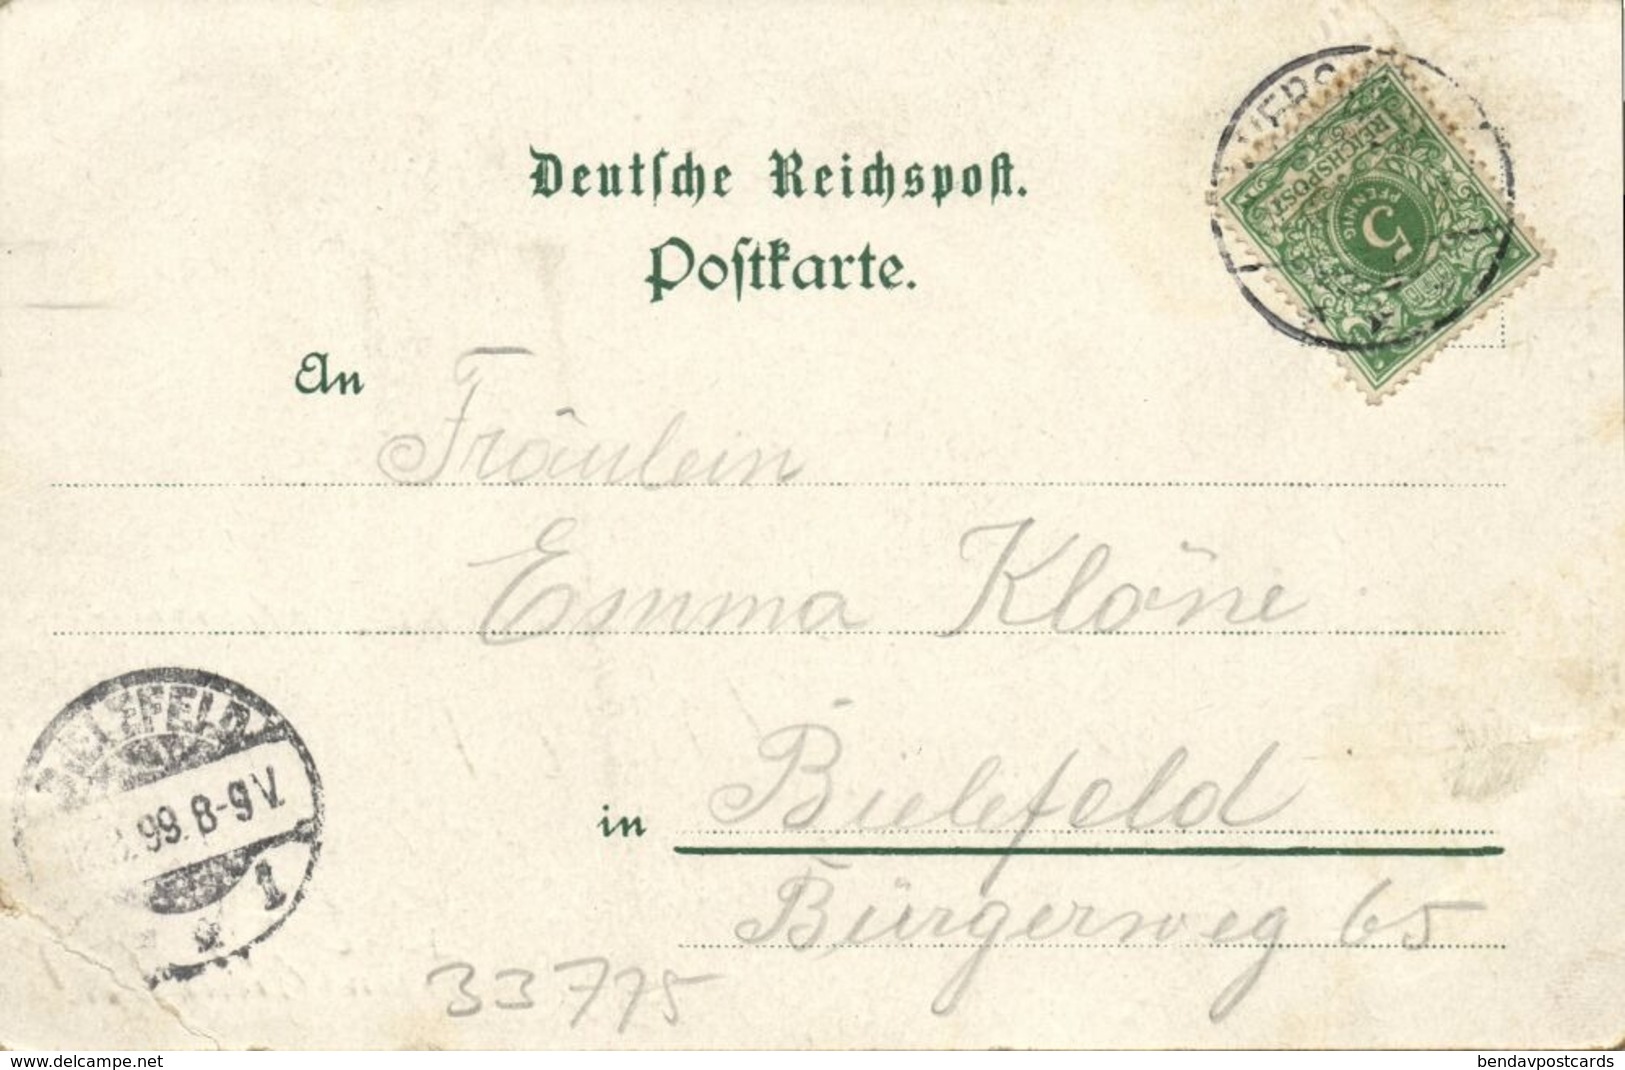 Deutsche Reichspost.
Postkarte.
REICHSPOST
5
PFENNIG
An
Fräulein
Emma Klöne
in Bielefeld
Bürgerweg 65
BIELEFELD
99. 8-9 V.
1
33775
www.delcampe.net
bendavpostcards